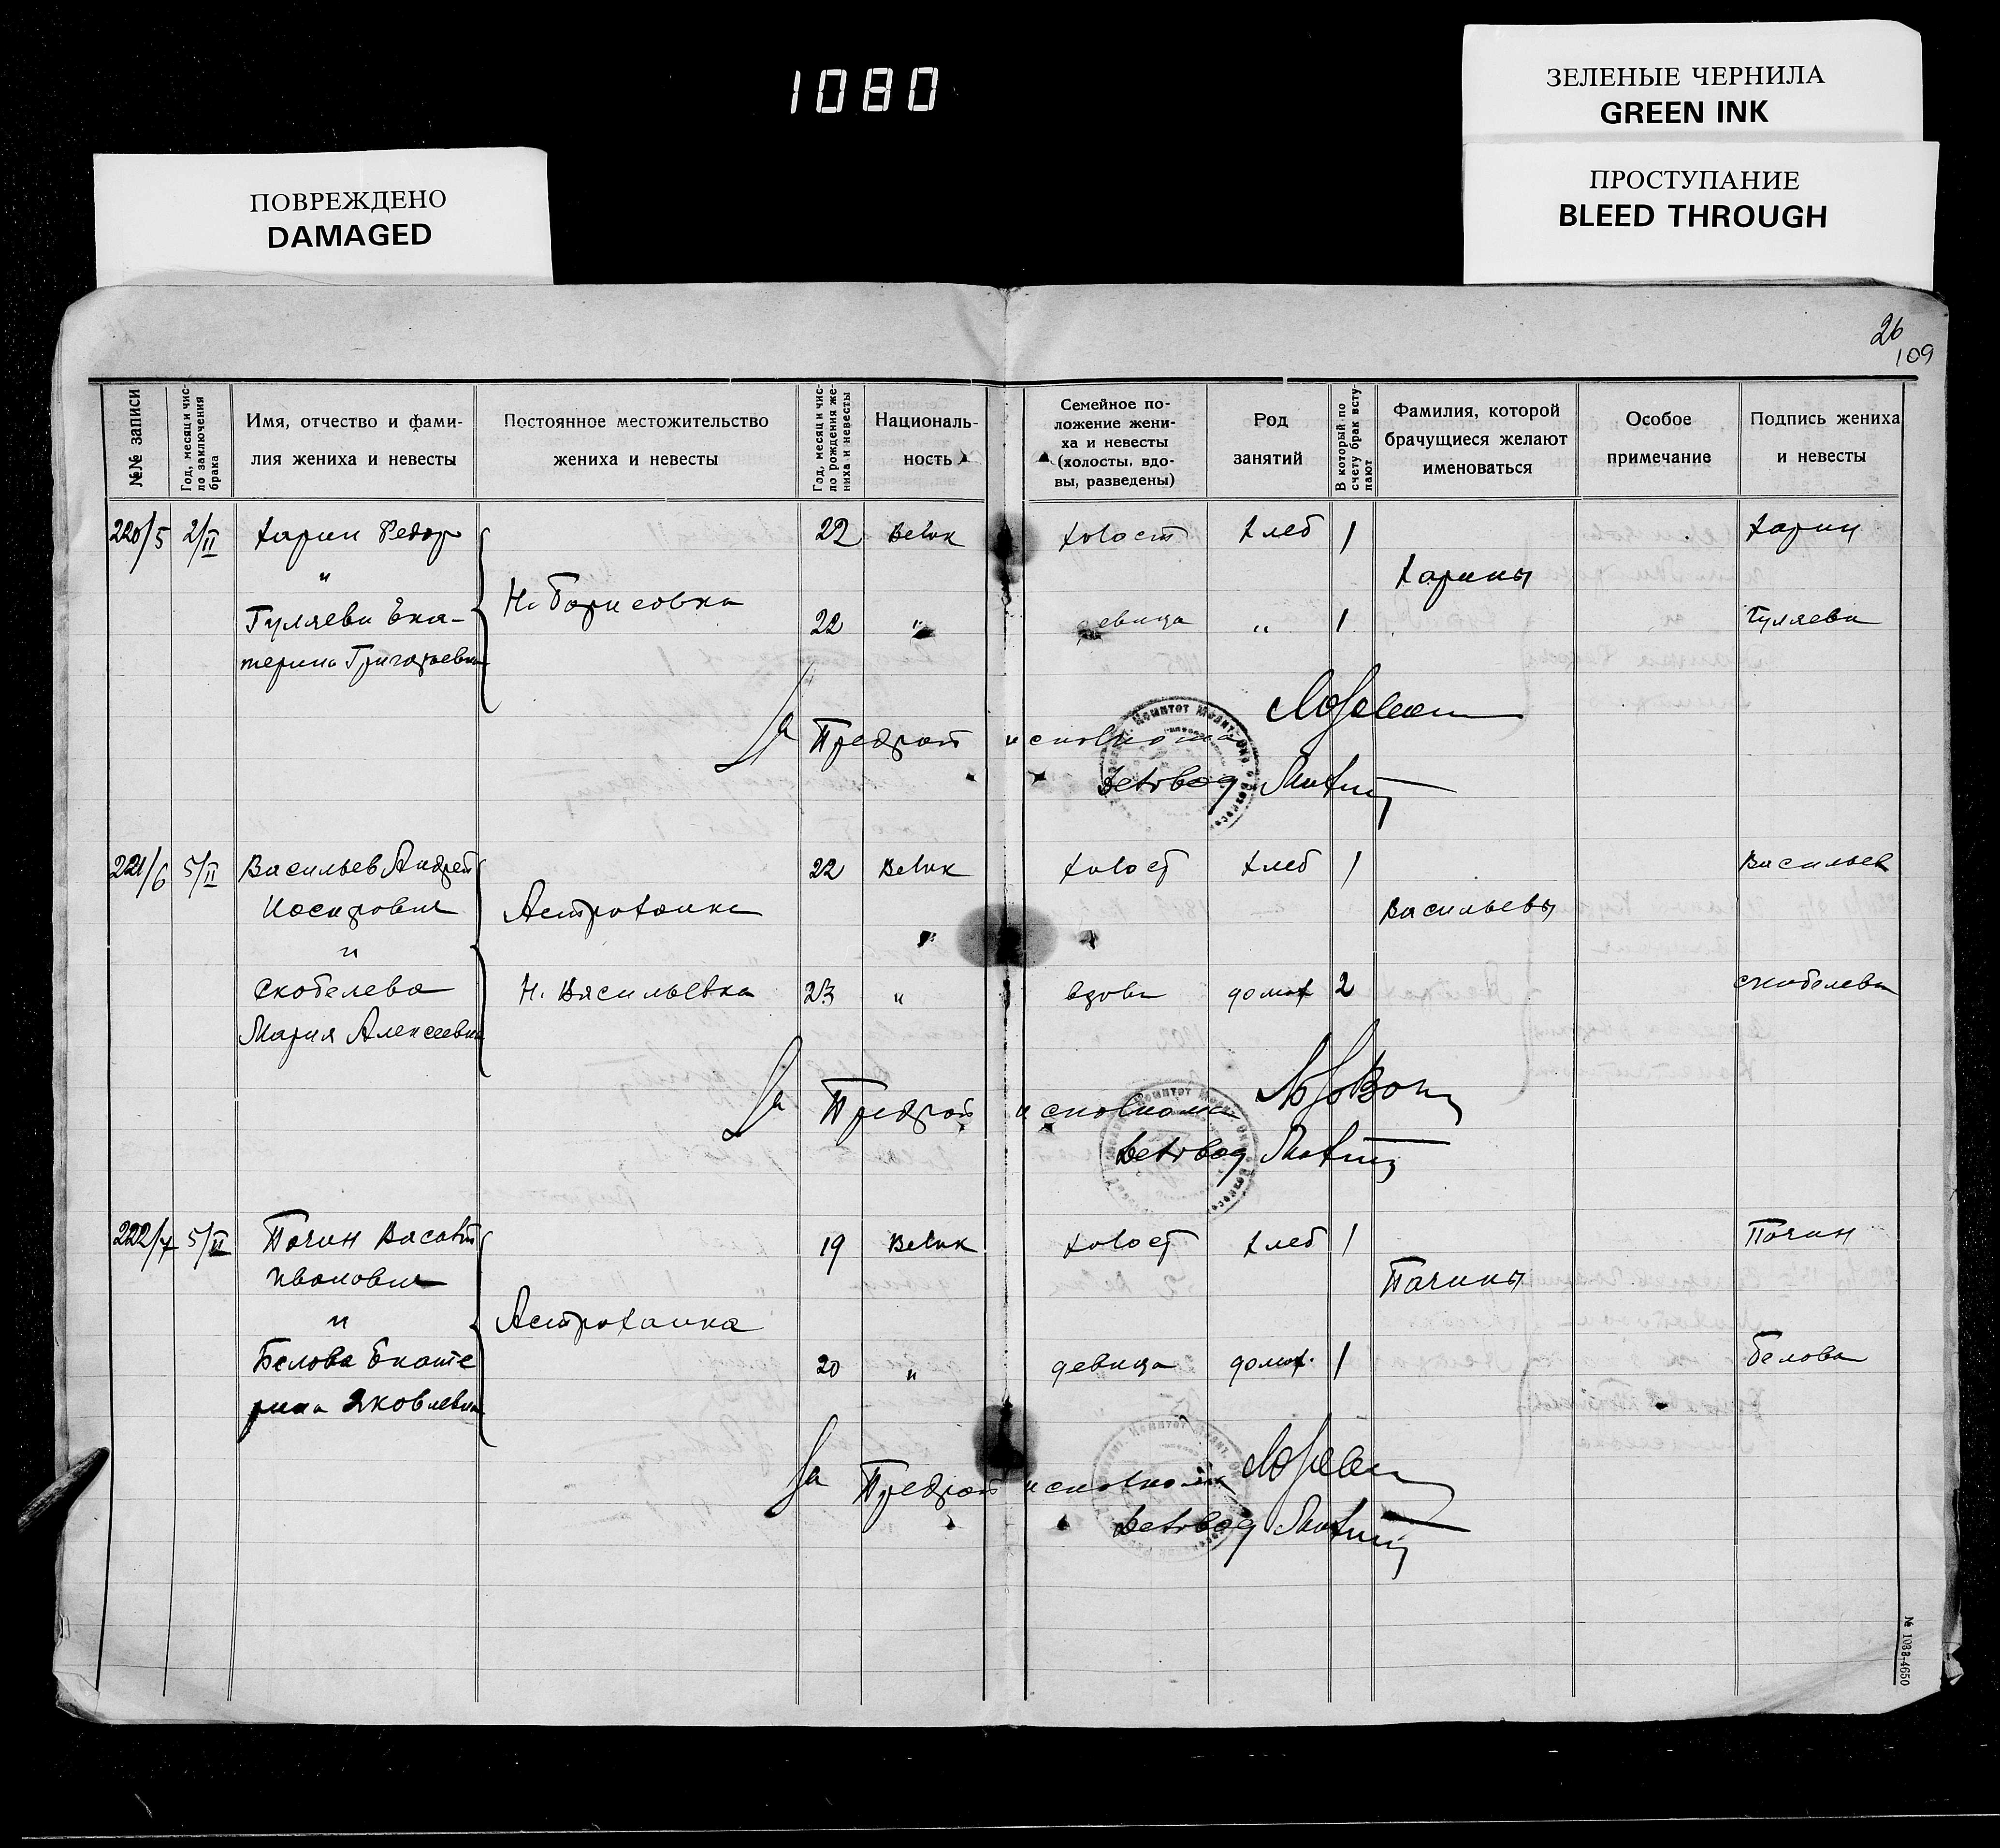 1080
ЗЕЛЕНЫЕ ЧЕРНИЛА
GREEN INK
ПРОСТУПАНИЕ
BLEED THROUGH
ПОВРЕЖДЕНО
DAMAGED
26
109
№№ записи
Год, месяц и число заключения брака
Имя, отчество и фами-
лия жениха и невесты
Постоянное местожительство
жениха и невесты
Год, месяц и чис-
ло рождения же-
ниха и невесты
Националь-
ность
Семейное по-
ложение жени-
ха и невесты
(холосты, вдо-
вы, разведены)
Род
занятий
В который по
счету брак всту-
пают
Фамилия, которой
брачущиеся желают
именоваться
Особое
примечание
Подпись жениха
и невесты
220/5 2/II Харин Федор 22 Велик холост хлеб 1 Харин
и
Н. Борисовка Харины
Гуляева Ека- 22 " девица " 1 Гуляева
терина Григорьевна
За Предрай исполкома
Делопроизв
221/6 5/II Васильев Андрей 22 Велик холост хлеб 1 Васильев
Иосифович Астраханка Васильевы
и
Скобелева Н. Васильевка 23 " вдова домах 2 Скобелева
Мария Алексеевна
За Предрай исполкома
222/7 5/II Пачин Василий 19 Велик холост хлеб 1 Пачин
Иванович Пачины
и Астраханка
Белова Екате 20 " девица домах. 1 Белова
рина Яковлевна
За Предрай исполкома
№ 1088-4650